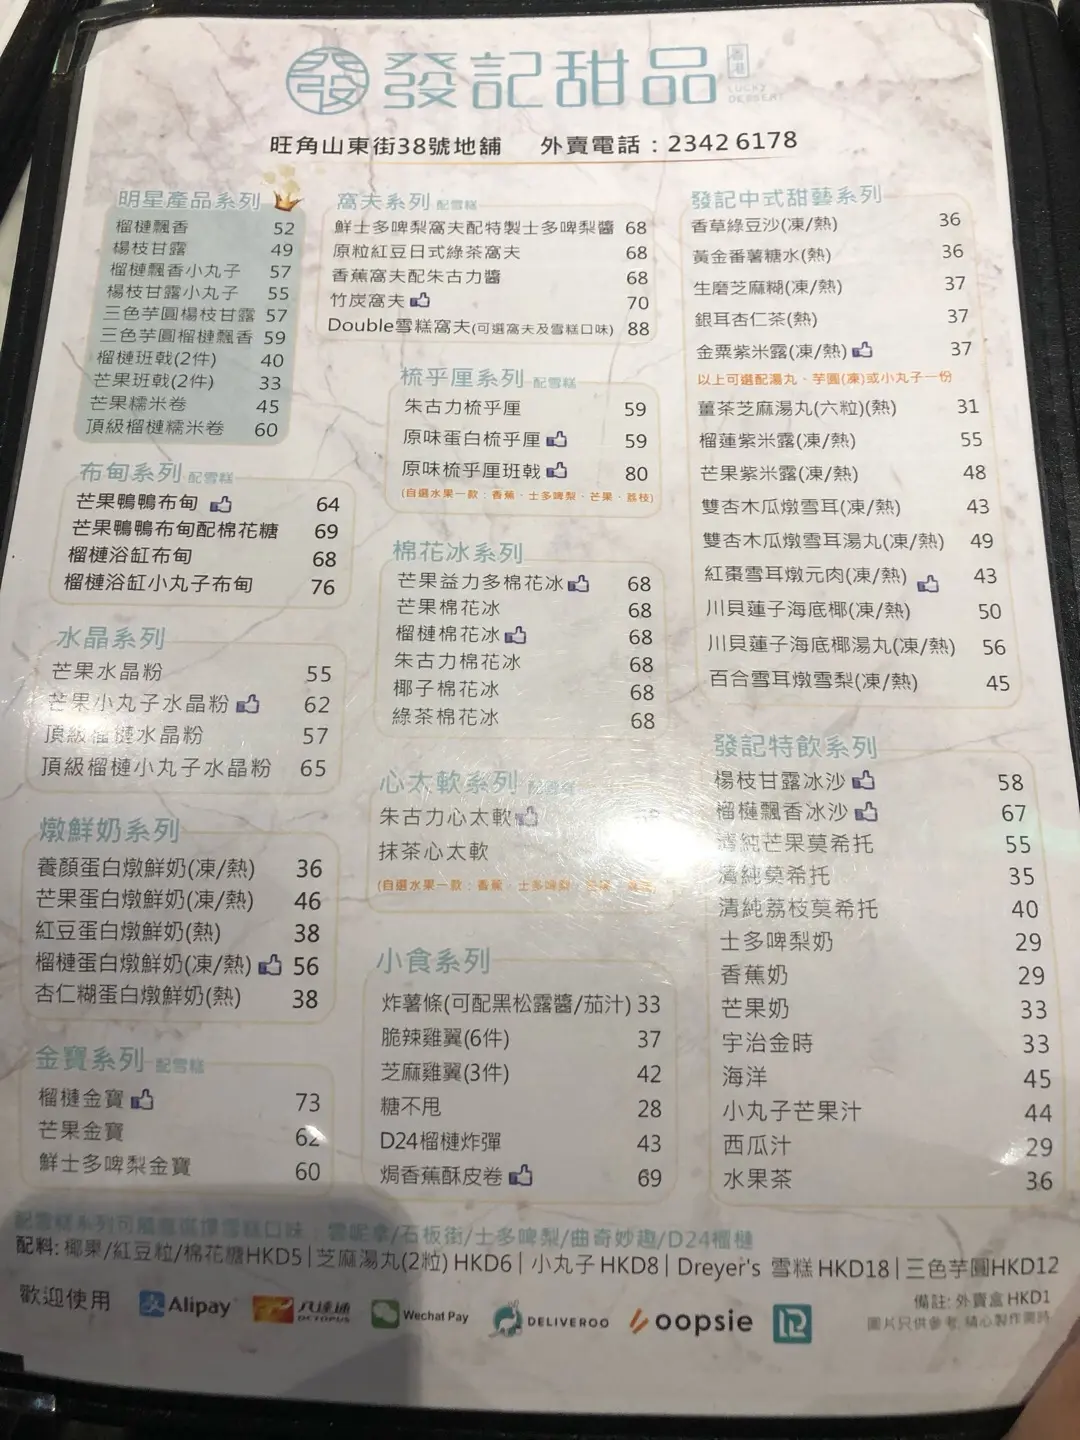 發 發記甜品 香港 LUCKY DESSERT
旺角山東街38號地舖 外賣電話：2342 6178
明星產品系列
榴槤飄香 52
楊枝甘露 49
榴槤飄香小丸子 57
楊枝甘露小丸子 55
三色芋圓楊枝甘露 57
三色芋圓榴槤飄香 59
榴槤班戟(2件) 40
芒果班戟(2件) 33
芒果糯米卷 45
頂級榴槤糯米卷 60
布甸系列 配雪糕
芒果鴨鴨布甸 64
芒果鴨鴨布甸配棉花糖 69
榴槤浴缸布甸 68
榴槤浴缸小丸子布甸 76
水晶系列
芒果水晶粉 55
芒果小丸子水晶粉 62
頂級榴槤水晶粉 57
頂級榴槤小丸子水晶粉 65
燉鮮奶系列
養顏蛋白燉鮮奶(凍/熱) 36
芒果蛋白燉鮮奶(凍/熱) 46
紅豆蛋白燉鮮奶(熱) 38
榴槤蛋白燉鮮奶(凍/熱) 56
杏仁糊蛋白燉鮮奶(熱) 38
金寶系列 配雪糕
榴槤金寶 73
芒果金寶 62
鮮士多啤梨金寶 60
窩夫系列 配雪糕
鮮士多啤梨窩夫配特製士多啤梨醬 68
原粒紅豆日式綠茶窩夫 68
香蕉窩夫配朱古力醬 68
竹炭窩夫 70
Double雪糕窩夫(可選窩夫及雪糕口味) 88
梳乎厘系列 配雪糕
朱古力梳乎厘 59
原味蛋白梳乎厘 59
原味梳乎厘班戟 80
(自選水果一款：香蕉、士多啤梨、芒果、荔枝)
棉花冰系列
芒果益力多棉花冰 68
芒果棉花冰 68
榴槤棉花冰 68
朱古力棉花冰 68
椰子棉花冰 68
綠茶棉花冰 68
心太軟系列 配雪糕
朱古力心太軟
抹茶心太軟
(自選水果一款：香蕉、士多啤梨
小食系列
炸薯條(可配黑松露醬/茄汁) 33
脆辣雞翼(6件) 37
芝麻雞翼(3件) 42
糖不甩 28
D24榴槤炸彈 43
焗香蕉酥皮卷 69
發記中式甜藝系列
香草綠豆沙(凍/熱) 36
黃金番薯糖水(熱) 36
生磨芝麻糊(凍/熱) 37
銀耳杏仁茶(熱) 37
金粟紫米露(凍/熱) 37
以上可選配湯丸、芋圓(凍)或小丸子一份
薑茶芝麻湯丸(六粒)(熱) 31
榴蓮紫米露(凍/熱) 55
芒果紫米露(凍/熱) 48
雙杏木瓜燉雪耳(凍/熱) 43
雙杏木瓜燉雪耳湯丸(凍/熱) 49
紅棗雪耳燉元肉(凍/熱) 43
川貝蓮子海底椰(凍/熱) 50
川貝蓮子海底椰湯丸(凍/熱) 56
百合雪耳燉雪梨(凍/熱) 45
發記特飲系列
楊枝甘露冰沙 58
榴槤飄香冰沙 67
清純芒果莫希托 55
清純莫希托 35
清純荔枝莫希托 40
士多啤梨奶 29
香蕉奶 29
芒果奶 33
宇治金時 33
海洋 45
小丸子芒果汁 44
西瓜汁 29
水果茶 36
配雪糕系列可隨意選擇雪糕口味：雲呢拿/石板街/士多啤梨/曲奇妙趣/D24榴槤
配料: 椰果/紅豆粒/棉花糖HKD5|芝麻湯丸(2粒) HKD6| 小丸子 HKD8| Dreyer's 雪糕 HKD18| 三色芋圓HKD12
歡迎使用 支 Alipay 八達通 OCTOPUS Wechat Pay DELIVEROO oopsie
備註: 外賣盒 HKD1
圖片只供參考, 精心製作需時